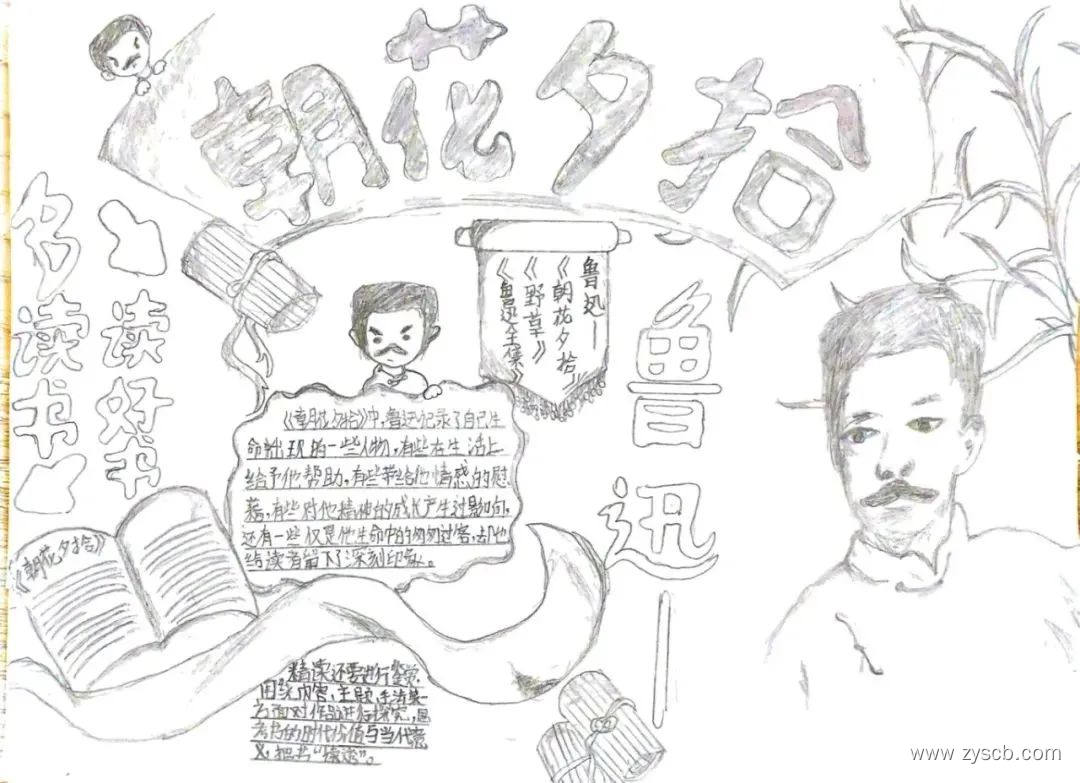 朝花夕拾
多读书
读好书
鲁迅——
《朝花夕拾》
《野草》
《鲁迅全集》
鲁迅
《朝花夕拾》
《朝花夕拾》中，鲁迅记录了自己生
命出现的一些人物，有些在生活上
给予他帮助，有些带给他情感的慰
藉，有些对他精神的成长产生过影响，
还有一些仅是他生命中的匆匆过客，却也
给读者留下深刻印象。
精读还要进行鉴赏，
内容、主题、手法等
方面对作品进行探究，思
考书的时代价值与当代意
义，把书“读透”。
www.zyscb.com